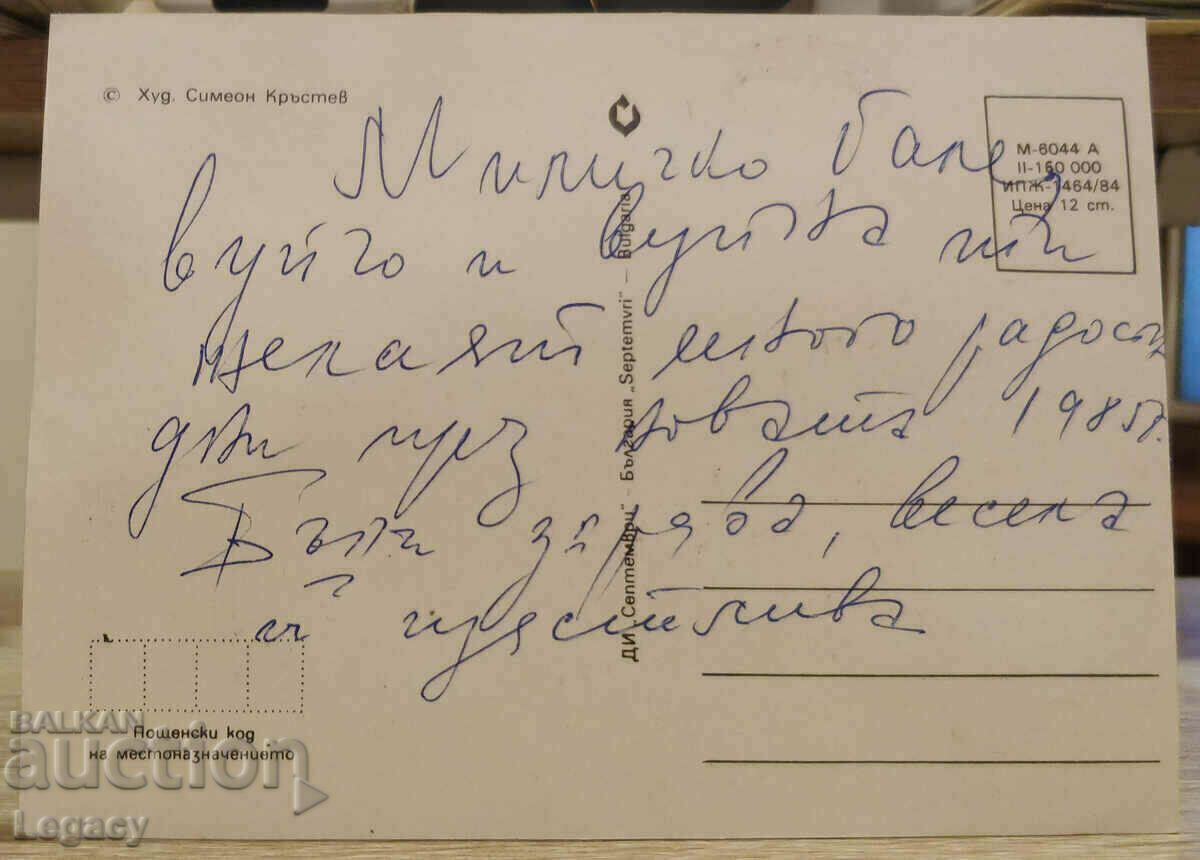 © Худ. Симеон Кръстев
М-6044 А
II-160 000
ИПЖ-1464/84
Цена 12 ст.
Миличко
вуйчо и вуйна ти
желаят много радостни
дни през новата 1985г.
Бъди здрава, весела
и щастлива
ДИ „Септември" - България „Septemvri" - Bulgaria
Пощенски код
на местоназначението
BALKAN
auction
Legacy